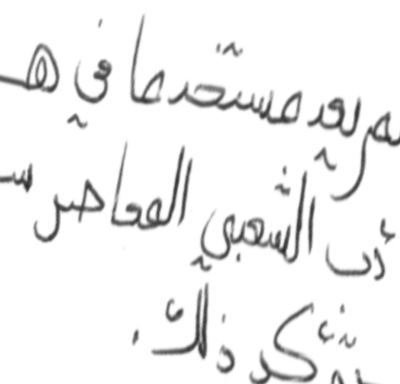 لم يعد مستخدما في هـ
أدب الشعبي المعاصر
يؤكد ذلك.